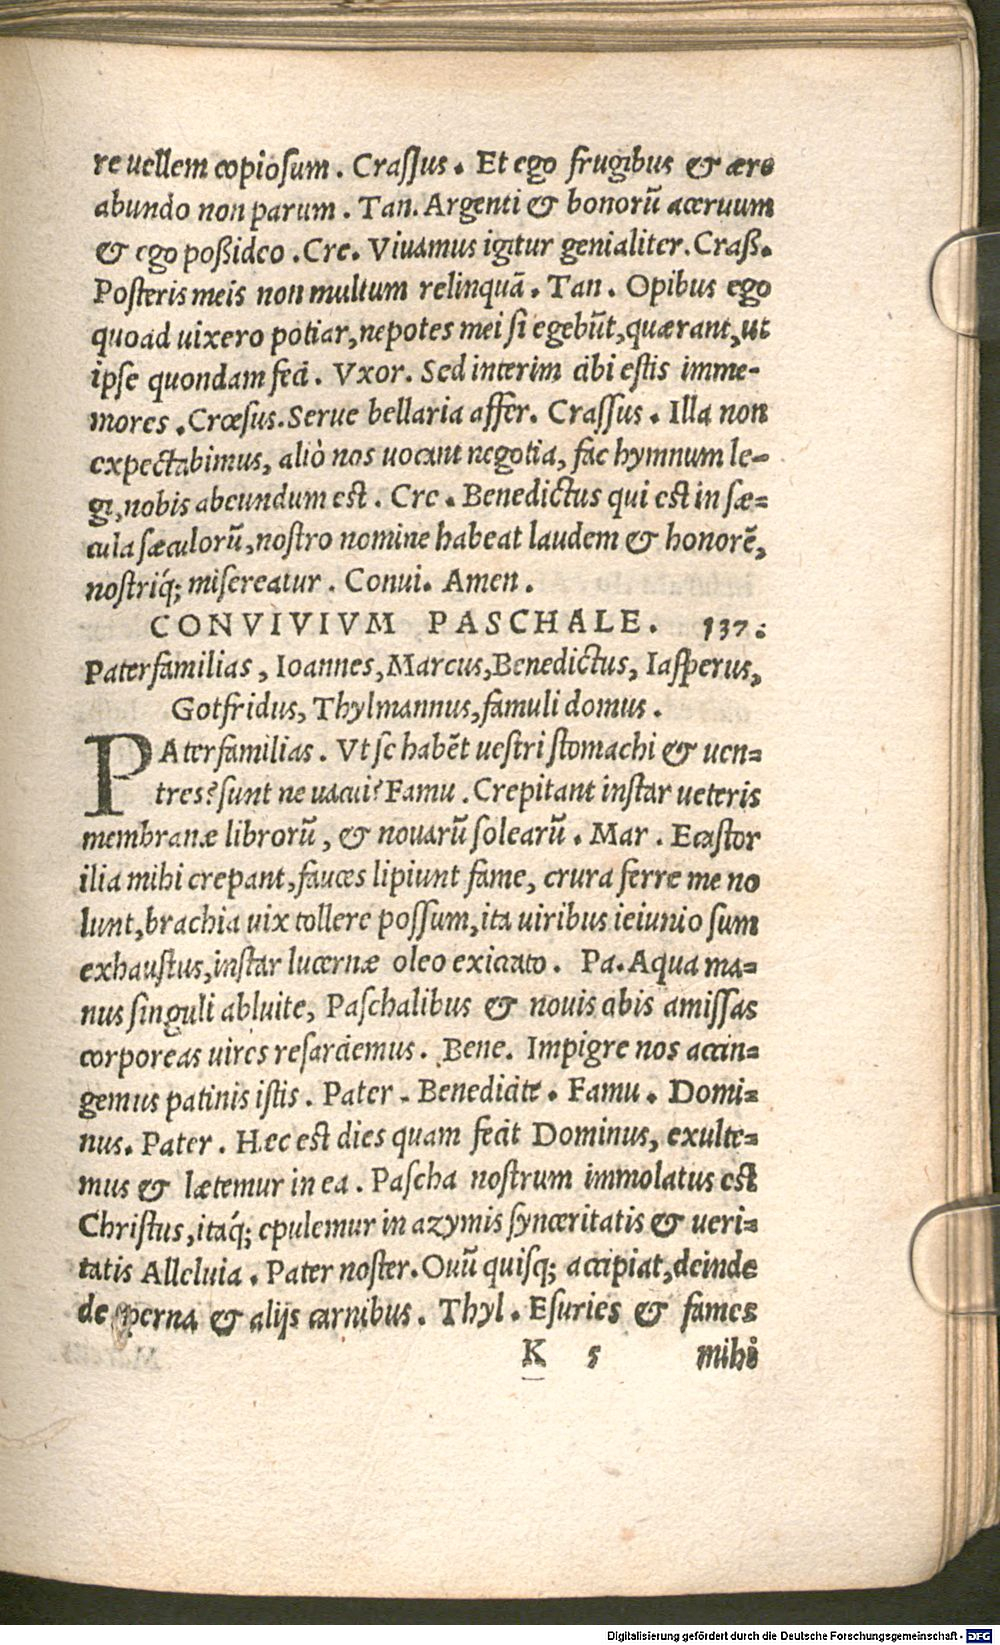 re uellem copiosum. Crassus. Et ego frugibus & ære
abundo non parum. Tan. Argenti & bonorũ aceruum
& ego poßideo. Cre. Viuamus igitur genialiter. Craß.
Posteris meis non multum relinquã. Tan. Opibus ego
quoad uixero potiar, nepotes mei si egebũt, quærant, ut
ipse quondam feci. Vxor. Sed interim cibi estis imme-
mores. Crœsus. Serue bellaria affer. Crassus. Illa non
expectabimus, aliò nos uocant negotia, fac hymnum le-
gi, nobis abeundum est. Cre. Benedictus qui est in sæ=
cula sæculorũ, nostro nomine habeat laudem & honorẽ,
nostriq́; misereatur. Conui. Amen.
CONVIVIVM PASCHALE. 137.
Paterfamilias, Ioannes, Marcus, Benedictus, Iasperus,
Gotfridus, Thylmannus, famuli domus.
PAterfamilias. Vt se habẽt uestri stomachi & uen=
tres? sunt ne uacui? Famu. Crepitant instar ueteris
membranæ librorũ, & nouarũ solearũ. Mar. Ecastor
ilia mihi crepant, fauces lipiunt fame, crura ferre me no
lunt, brachia uix tollere possum, ita uiribus ieiunio sum
exhaustus, instar lucernæ oleo exiccato. Pa. Aqua ma=
nus singuli abluite, Paschalibus & nouis cibis amissas
corporeas uires resarciemus. Bene. Impigre nos accin=
gemus patinis istis. Pater. Benedicite. Famu. Domi=
nus. Pater. Hæc est dies quam fecit Dominus, exulte=
mus & lætemur in ea. Pascha nostrum immolatus est
Christus, itaq́; epulemur in azymis synceritatis & ueri=
tatis Alleluia. Pater noster. Ouũ quisq; accipiat, deinde
de perna & alijs carnibus. Thyl. Esuries & fames
K 5 mihi
Digitalisierung gefördert durch die Deutsche Forschungsgemeinschaft - DFG